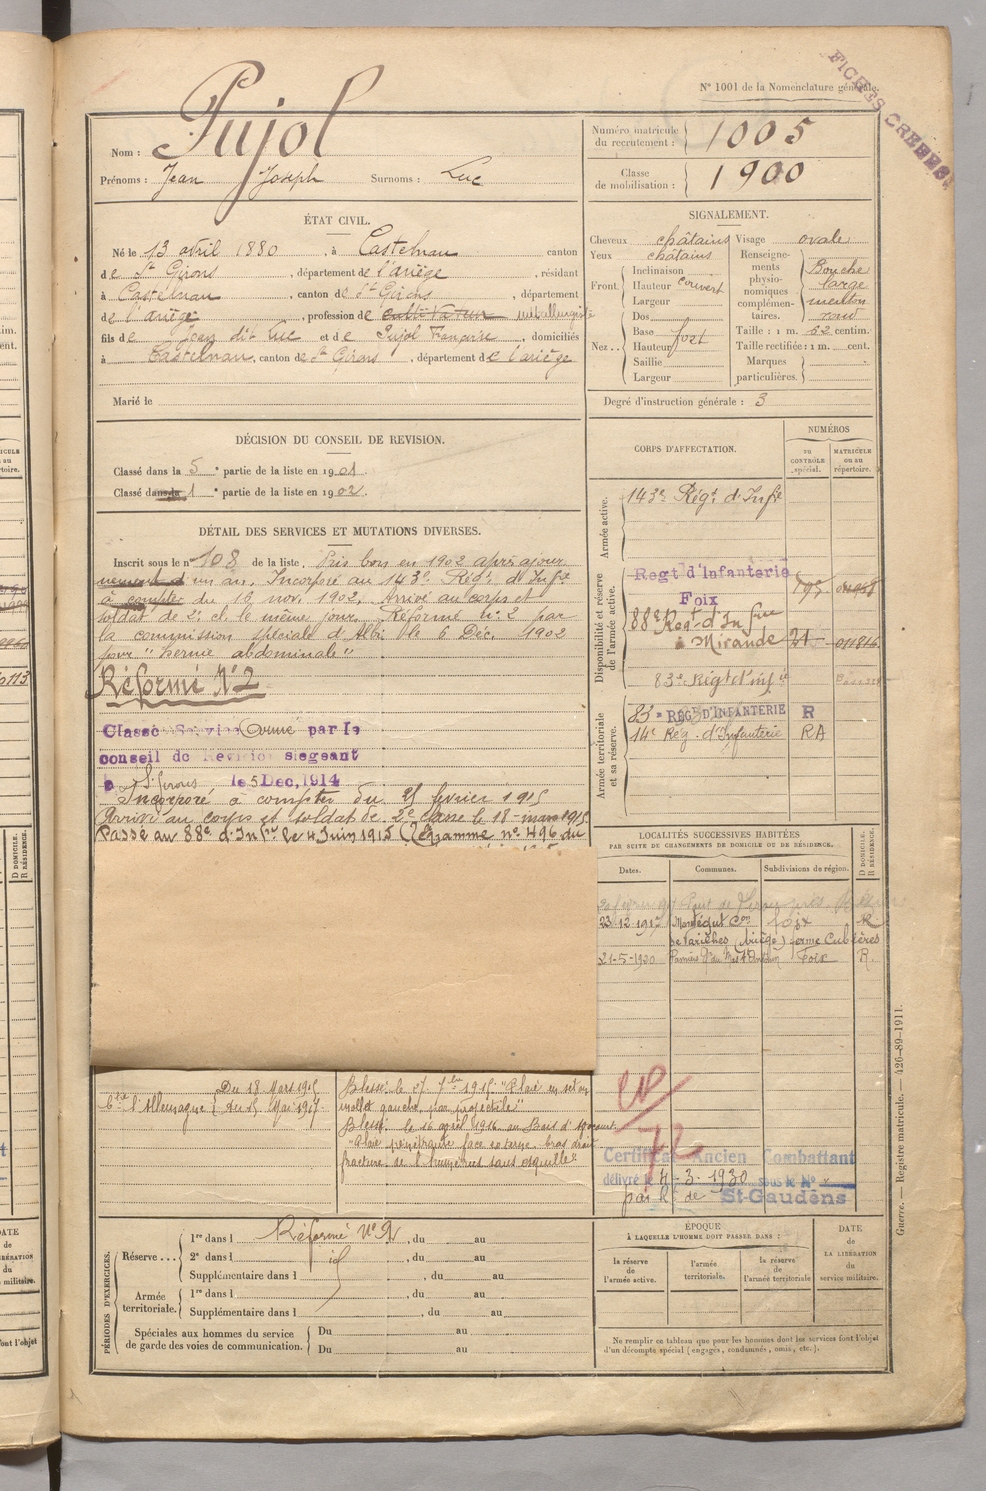 FICHES CREEES
N° 1001 de la Nomenclature générale.
Nom : Pujol
Prénoms : Jean Joseph Surnoms : Luc
Numéro matricule du recrutement : 1005
Classe de mobilisation : 1900
ÉTAT CIVIL.
Né le 13 avril 1880, à Castelnau canton
de St Girons, département de l'ariège, résidant
à Castelnau, canton de St Girons, département
de l'ariège, profession de cultivateur métallurgiste
fils de Jean dit Luc et de Pujol Françoise, domiciliés
à Castelnau, canton de St Girons, département de l'ariège
Marié le
SIGNALEMENT.
Cheveux châtains
Yeux châtains
Front. Inclinaison
Hauteur couvert
Largeur
Nez.. Dos
Base
Hauteur fort
Saillie
Largeur
Visage ovale
Renseignements physionomiques complémentaires. Bouche large menton rond
Taille : 1 m. 62 centim.
Taille rectifiée : 1 m. cent.
Marques particulières.
Degré d'instruction générale : 3
DÉCISION DU CONSEIL DE REVISION.
Classé dans la 5e partie de la liste en 1901.
Classé dans la 1e partie de la liste en 1902.
DÉTAIL DES SERVICES ET MUTATIONS DIVERSES.
Inscrit sous le n° 108 de la liste. Pris bon en 1902 après ajour
nement d'un an. Incorporé au 143e Régt d'Infie
à compter du 16 nov. 1902. Arrivé au corps et
soldat de 2e cl. le même jour. Réformé n° 2 par
la commission spéciale d'Albi le 6 Déc. 1902
pour "hernie abdominale"
Réformé N° 2
Classé Service Armé par le
conseil de Révision siégeant
à St Girons le 5 Dec, 1914
Incorporé à compter du 25 février 1915
Arrivé au corps et soldat de 2e classe le 18 mars 1915
Passé au 88e d'Infie le 4 Juin 1915 (Régamme n° 496 du
CORPS D'AFFECTATION.
NUMÉROS
au CONTRÔLE spécial.
MATRICULE ou au répertoire.
Armée active.
143e Régt d'Infie
Disponibilité et réserve de l'armée active.
Regt d'Infanterie
Foix
88e Reg. d'Infie
à Mirande 21 011816
83e Régt d'infie
Armée territoriale et sa réserve.
83e REGt D'INFANTERIE R
14e Rég. d'Infanterie RA
LOCALITÉS SUCCESSIVES HABITÉES
PAR SUITE DE CHANGEMENTS DE DOMICILE OU DE RÉSIDENCE.
Dates. Communes. Subdivisions de région. D DOMICILE. R RÉSIDENCE.
23-12-1917 Montégut Con Foix R
de Varilhes (Ariège) ferme Cublères
21-5-1930 Pamiers Foix R.
Ctre l'Allemagne Du 18 Mars 1915
Au 15 Mai 1917
Blessé le 27 7bre 1915 : "Plaie en seton
mollet gauche, par projectile"
Blessé le 16 avril 1916 au Bois d'Avocourt
"Plaie pénétrante face externe bras droit
fracture de l'humérus sans esquille"
72
Certificat Ancien Combattant
délivré le 4-3-1930 sous le No
par R. de St-Gaudens
PÉRIODES D'EXERCICES.
Réserve ... 1re dans l Réformé N° 2, du au
2e dans l , du au
Supplémentaire dans l , du au
Armée territoriale. 1re dans l , du au
Supplémentaire dans l , du au
Spéciales aux hommes du service de garde des voies de communication. Du au
Du au
ÉPOQUE
À LAQUELLE L'HOMME DOIT PASSER DANS :
la réserve de l'armée active.
l'armée territoriale.
la réserve de l'armée territoriale
DATE de LA LIBÉRATION du service militaire.
Ne remplir ce tableau que pour les hommes dont les services font l'objet
d'un décompte spécial (engagés, condamnés, omis, etc.).
Guerre. — Registre matricule. — 426-89-1911.